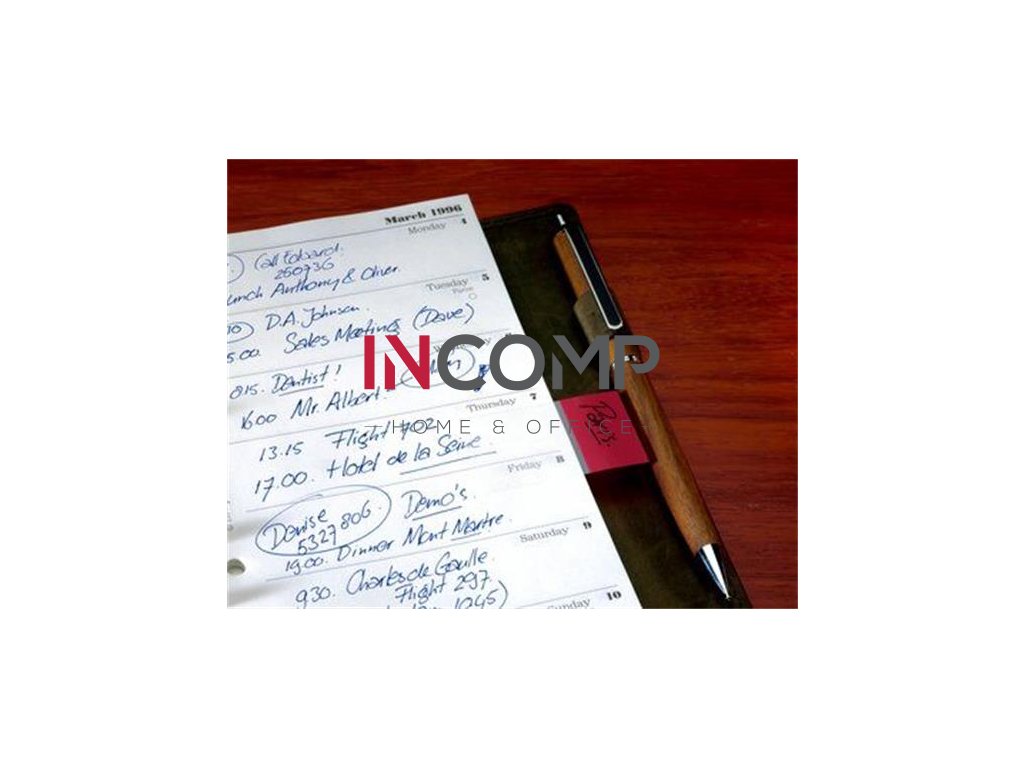 March 1996
Monday 4
Call Edward.
260736
Lunch Anthony & Oliver
Tuesday 5
D.A. Johnson.
5.00. Sales Meeting (Dave)
INCOMP
815. Dentist!
1600 Mr. Albert
HOME & OFFICE
Thursday 7
13.15 Flight 702
17.00. Hotel de la Seine
Paris.
Friday 8
Denise Demo's.
5327806.
1900. Dinner Mont Martre.
Saturday 9
930. Charles de Gaulle.
Flight 297.
1045)
Sunday 10